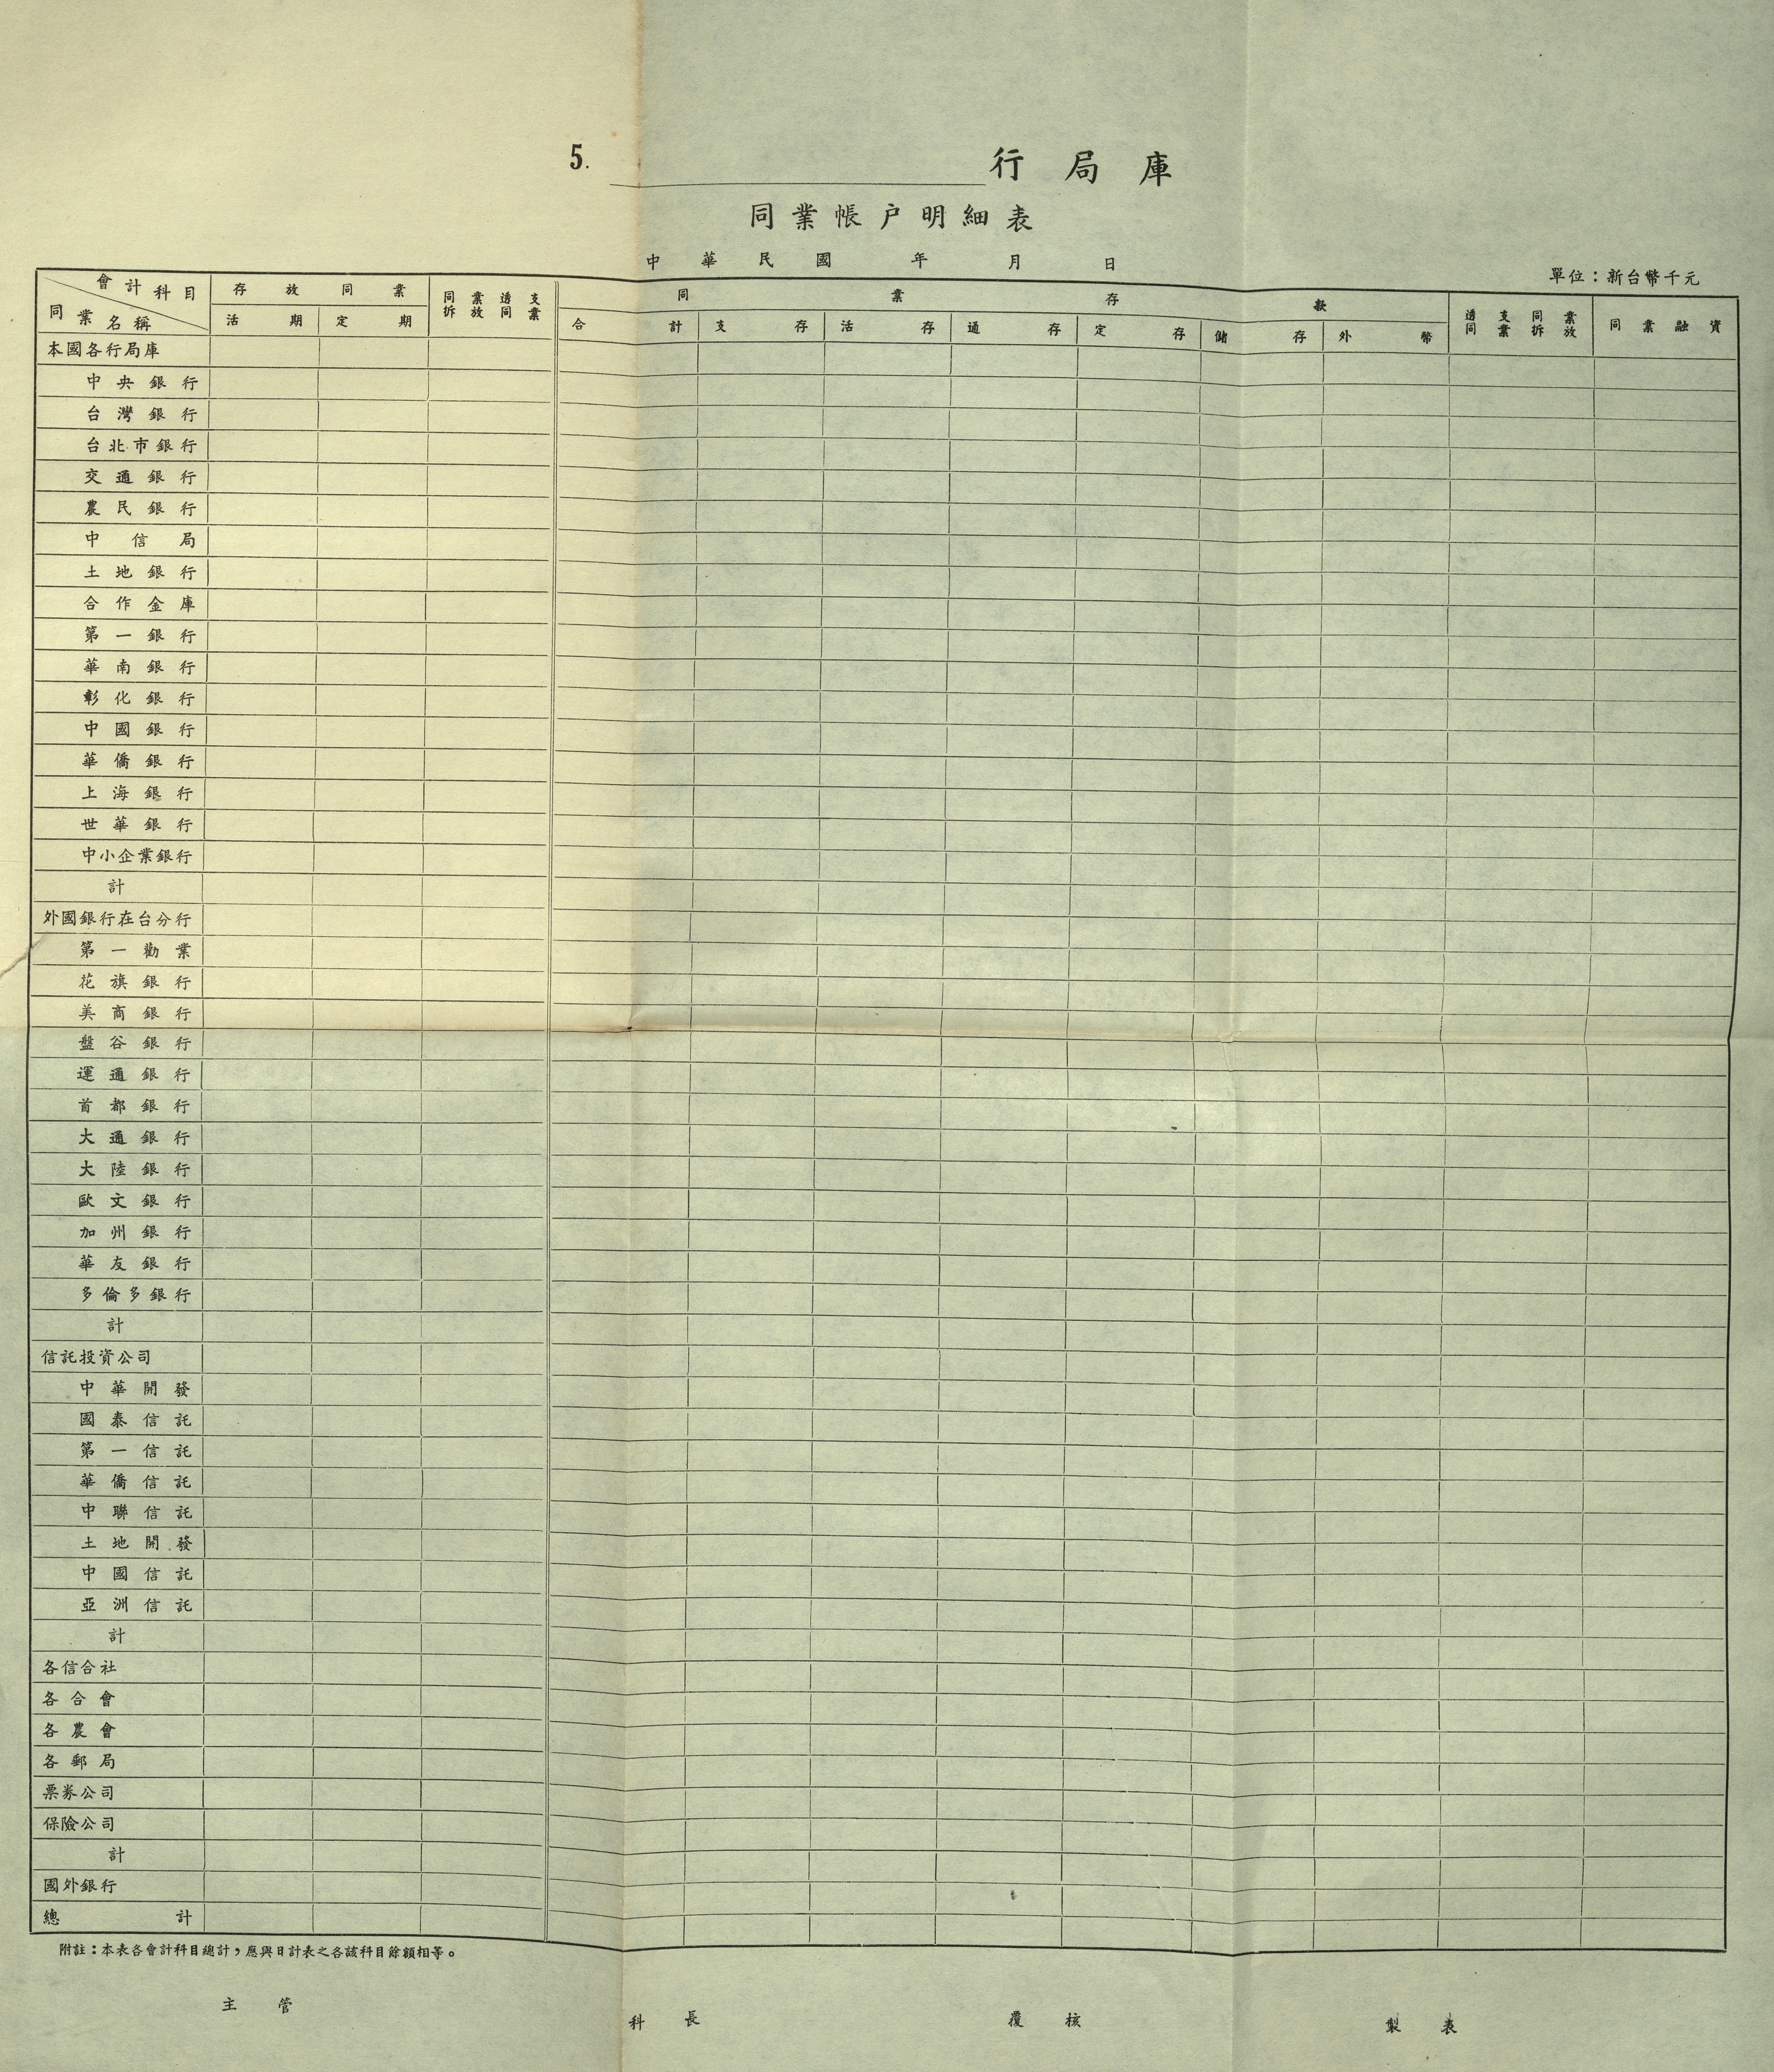 5. 行局庫
同業帳戶明細表
中華民國 年 月 日
單位：新台幣千元
會計科目 存放同業 同業透支 同業存款 透支同業 同業融資
拆放同業 同業拆放
同業名稱 活期 定期 合計 支存 活存 通存 定存 儲存 外幣
本國各行局庫
中央銀行
台灣銀行
台北市銀行
交通銀行
農民銀行
中信局
土地銀行
合作金庫
第一銀行
華南銀行
彰化銀行
中國銀行
華僑銀行
上海銀行
世華銀行
中小企業銀行
計
外國銀行在台分行
第一勸業
花旗銀行
美商銀行
盤谷銀行
運通銀行
首都銀行
大通銀行
大陸銀行
歐文銀行
加州銀行
華友銀行
多倫多銀行
計
信託投資公司
中華開發
國泰信託
第一信託
華僑信託
中聯信託
土地開發
中國信託
亞洲信託
計
各信合社
各合會
各農會
各郵局
票券公司
保險公司
計
國外銀行
總計
附註：本表各會計科目總計，應與日計表之各該科目餘額相等。
主管 科長 覆核 製表